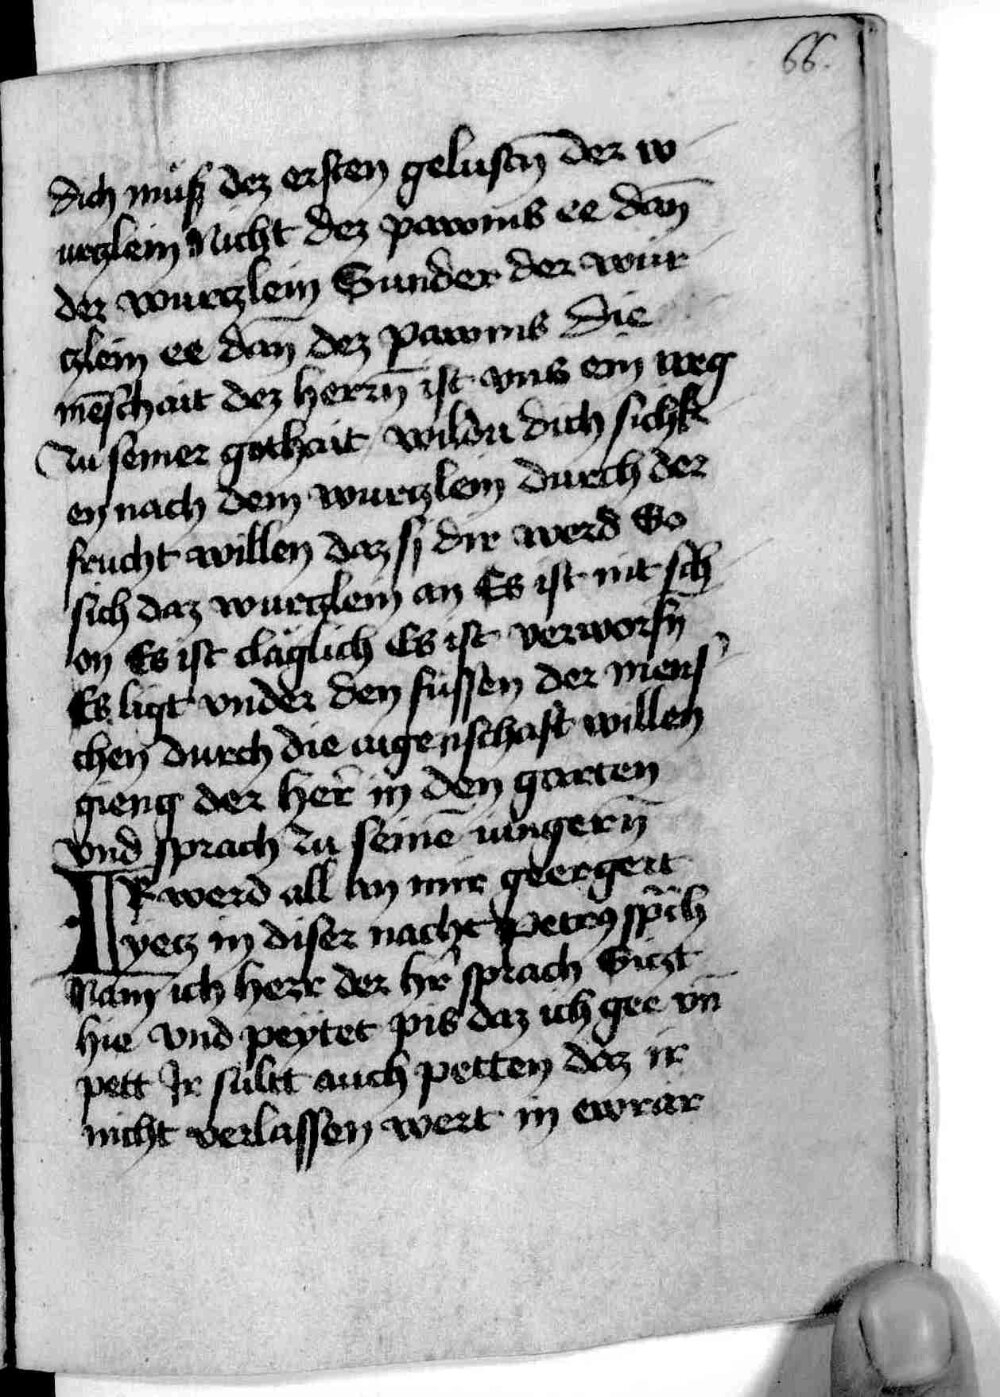 66.
dich müsz dez ersten gelustn̄ der w
urczlein Nicht dez pawms ee dan̄
der wurczlein Sunder der wur
czlein ee dan̄ dez pawms Die
mēschait dez herrn̄ ist vns ein weg
zu seiner gothait wildu dich sich
en nach dem wurczlein durch der
frucht willen daz sy dir werd So
sich daz wurczlein an Es ist nit sch
on Es ist cläglich Es ist verworfn̄
Es ligt vnder den füssen der mens
chen durch die aigenschaft willen
gieng der her̄ in den garten
vnd sprach zu seinē iungern̄
IR werd all an mir geergert
yecz in diser nacht Petrus sp̄ch
Nain ich herr der hr̄ sprach Siczt
hie vnd peytet pis daz ich gee vn̄
pett Ir sültt auch petten daz ir
nicht verlassen wert in ewrar